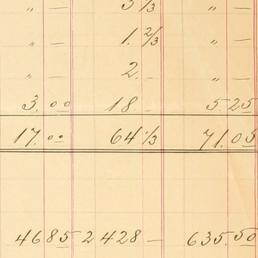 " — 3 1/3 " —
" — 1. 2/3 " —
" — 2. — " —
3.00 18 — 5.25
17.00 64 1/3 71.05
4685 2428 — 635.50